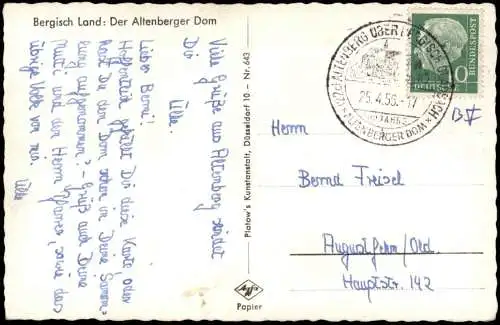 Bergisch Land: Der Altenberger Dom
Viele Grüße aus Altenberg sendet
Dir
Ulla.
Lieber Bernd!
Hoffentlich gefällt Dir diese Karte, oder
hast Du den Dom schon in Deine Samm-
lung aufgenommen? - Grüß auch Deine
Mutti und den Herrn Pfarrer, sowie das
übrige Volk von mir.
Ulla
Plotow's Kunstanstalt, Düsseldorf 10 - Nr. 643
Agfa
Papier
ALTENBERG ÜBER BERGISCH GLADBACH
25.4.56.-17
ALTENBERGER DOM
DEUTSCHE
BUNDESPOST
10
Herrn
Bernd Freisel
Augustfehn/Old.
Hauptstr. 142